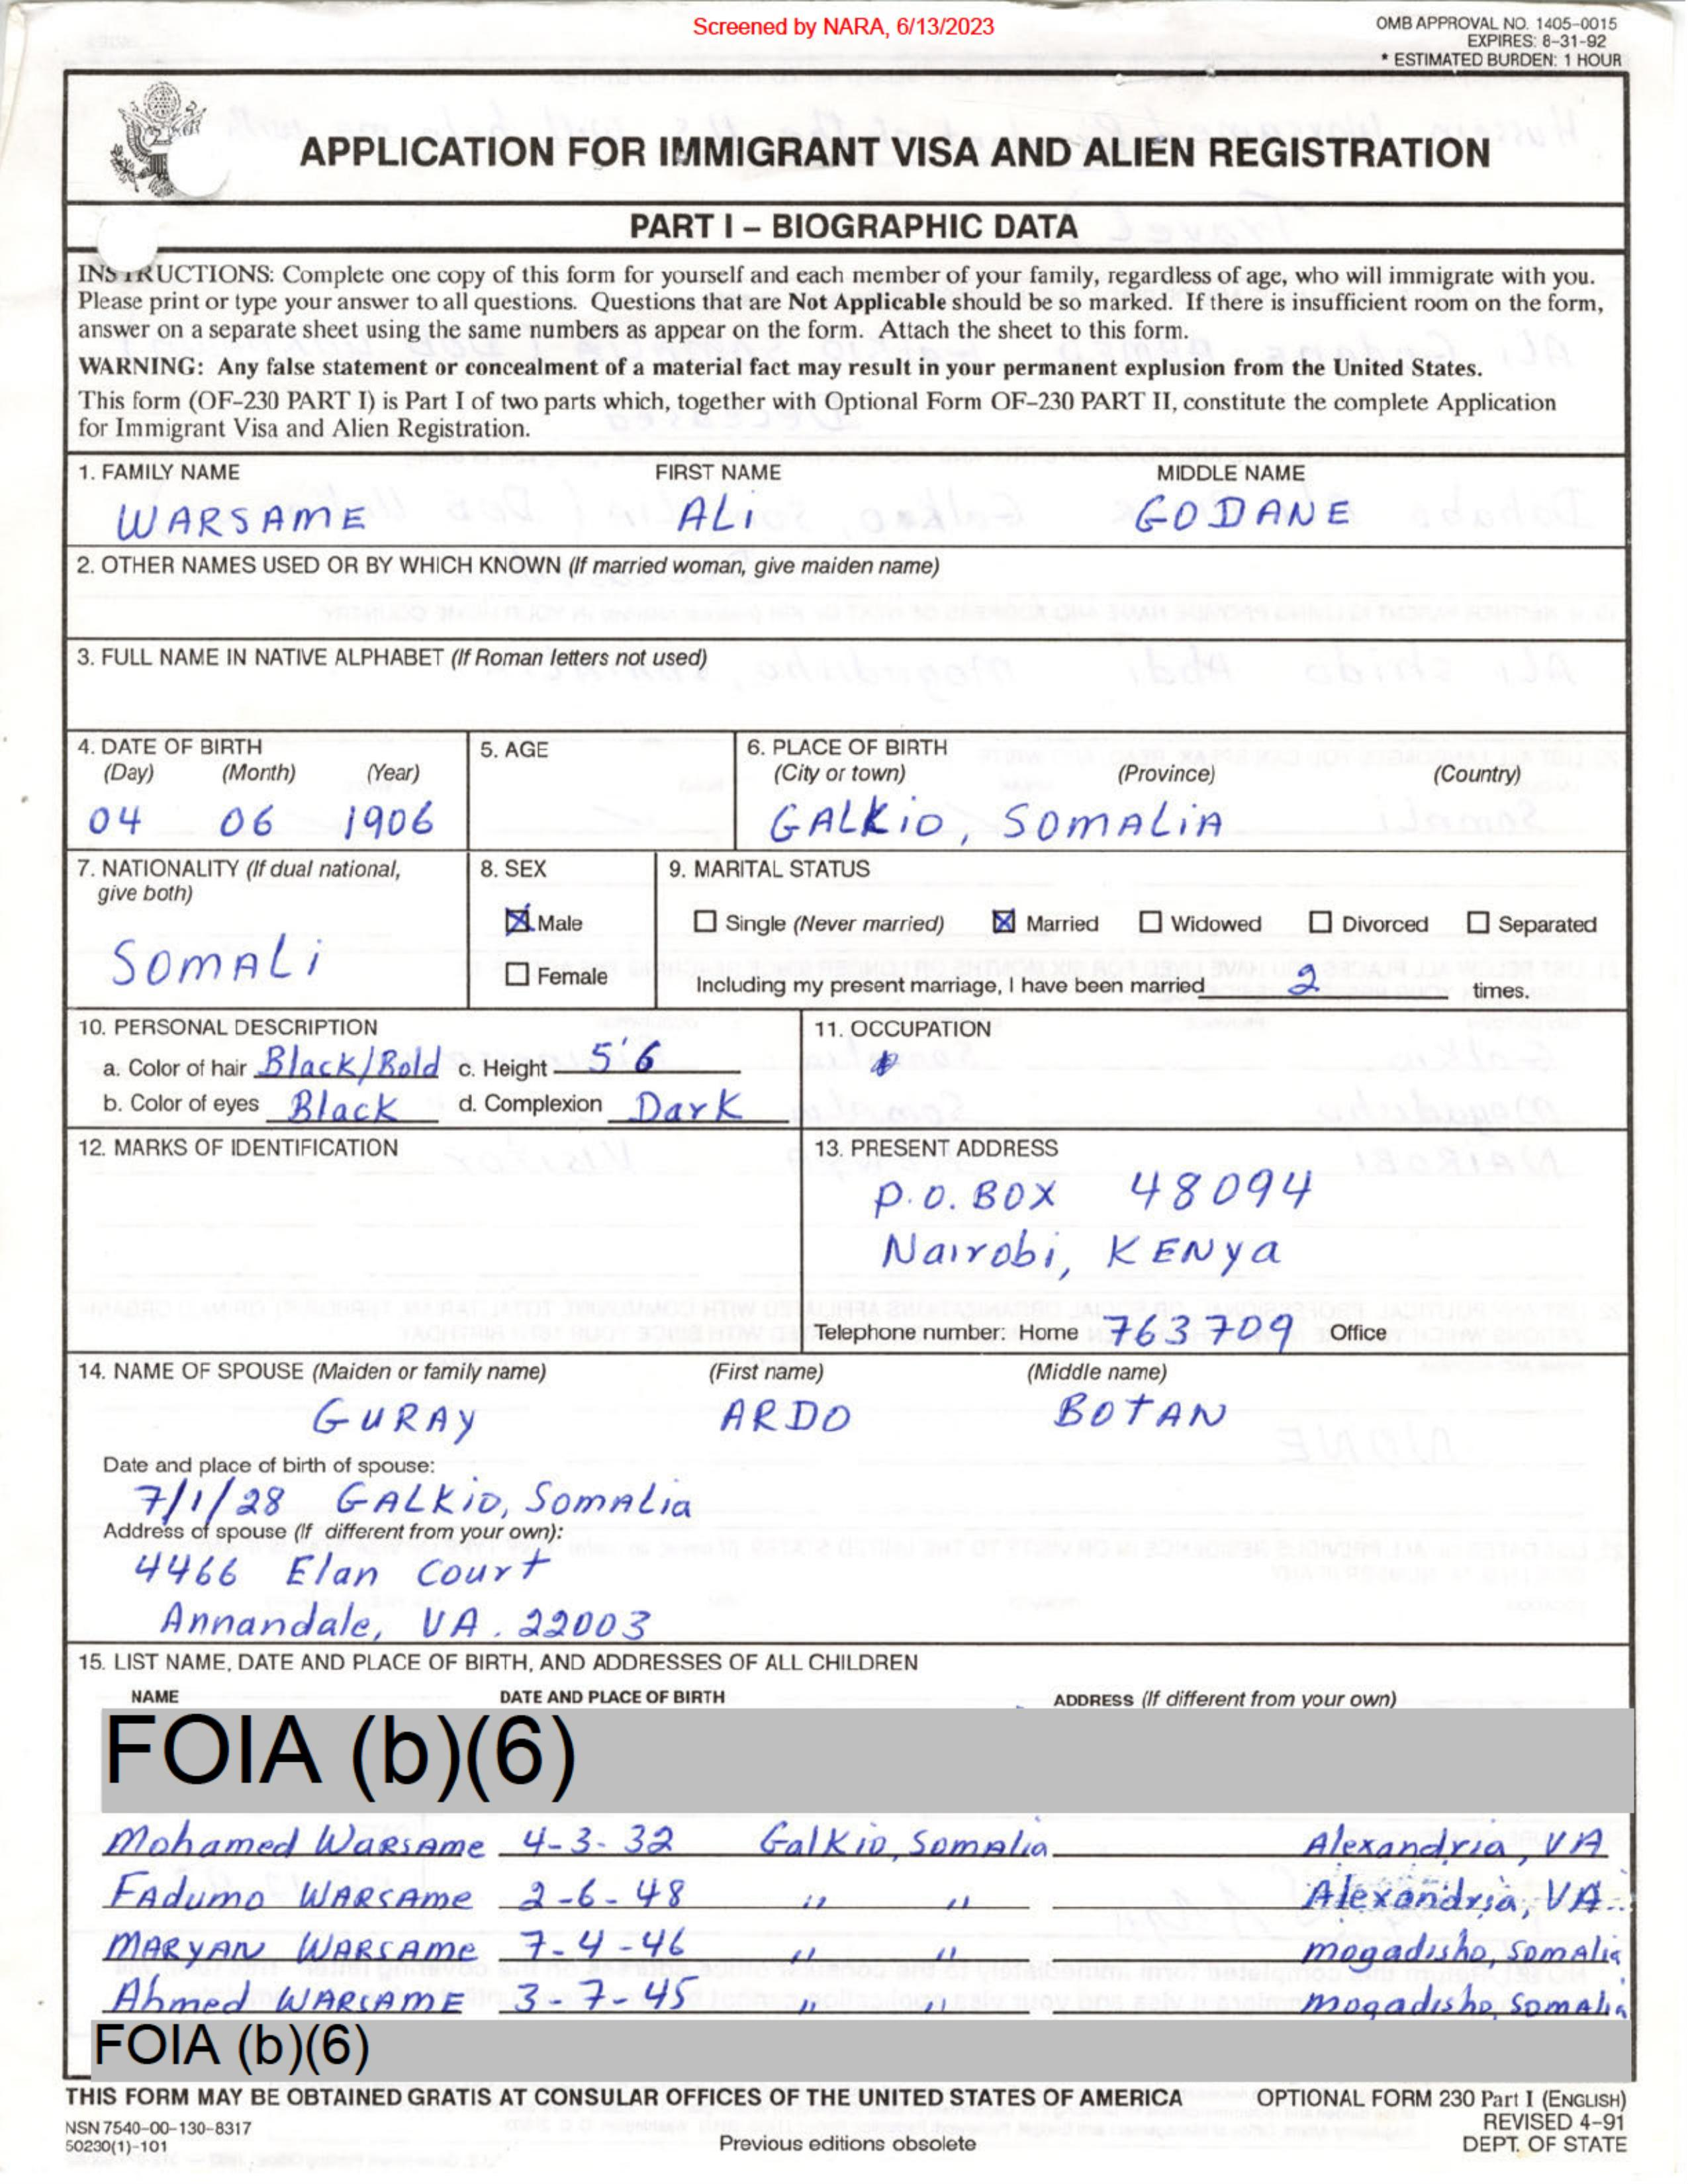 Screened by NARA, 6/13/2023
OMB APPROVAL NO. 1405-0015
EXPIRES: 8-31-92
* ESTIMATED BURDEN: 1 HOUR
APPLICATION FOR IMMIGRANT VISA AND ALIEN REGISTRATION
PART I – BIOGRAPHIC DATA
INSTRUCTIONS: Complete one copy of this form for yourself and each member of your family, regardless of age, who will immigrate with you.
Please print or type your answer to all questions. Questions that are Not Applicable should be so marked. If there is insufficient room on the form,
answer on a separate sheet using the same numbers as appear on the form. Attach the sheet to this form.
WARNING: Any false statement or concealment of a material fact may result in your permanent explusion from the United States.
This form (OF-230 PART I) is Part I of two parts which, together with Optional Form OF-230 PART II, constitute the complete Application
for Immigrant Visa and Alien Registration.
1. FAMILY NAME FIRST NAME MIDDLE NAME
WARSAME ALi GODANE
2. OTHER NAMES USED OR BY WHICH KNOWN (If married woman, give maiden name)
3. FULL NAME IN NATIVE ALPHABET (If Roman letters not used)
4. DATE OF BIRTH 5. AGE 6. PLACE OF BIRTH
(Day) (Month) (Year) (City or town) (Province) (Country)
04 06 1906 GALKiO, SOMALiA
7. NATIONALITY (If dual national, 8. SEX 9. MARITAL STATUS
give both)
Male Single (Never married) Married Widowed Divorced Separated
SOMALi
Female Including my present marriage, I have been married 2 times.
10. PERSONAL DESCRIPTION 11. OCCUPATION
a. Color of hair Black/Bold c. Height 5'6
b. Color of eyes Black d. Complexion Dark
12. MARKS OF IDENTIFICATION 13. PRESENT ADDRESS
P.O. BOX 48094
Nairobi, KENya
Telephone number: Home 763709 Office
14. NAME OF SPOUSE (Maiden or family name) (First name) (Middle name)
GURAY ARDO BOTAN
Date and place of birth of spouse:
7/1/28 GALKiO, SomALia
Address of spouse (If different from your own):
4466 Elan Court
Annandale, VA. 22003
15. LIST NAME, DATE AND PLACE OF BIRTH, AND ADDRESSES OF ALL CHILDREN
NAME DATE AND PLACE OF BIRTH ADDRESS (If different from your own)
FOIA (b)(6)
Mohamed WARSAme 4-3-32 GalKio, SomAlia Alexandria, VA
FAdumo WARSAme 2-6-48 " " Alexandria, VA
MARYAN WARSAme 7-4-46 " " mogadisho, SomAlia
Ahmed WARSAME 3-7-45 " " mogadisho, SomAlia
FOIA (b)(6)
THIS FORM MAY BE OBTAINED GRATIS AT CONSULAR OFFICES OF THE UNITED STATES OF AMERICA OPTIONAL FORM 230 Part I (ENGLISH)
NSN 7540-00-130-8317 REVISED 4-91
50230(1)-101 Previous editions obsolete DEPT. OF STATE